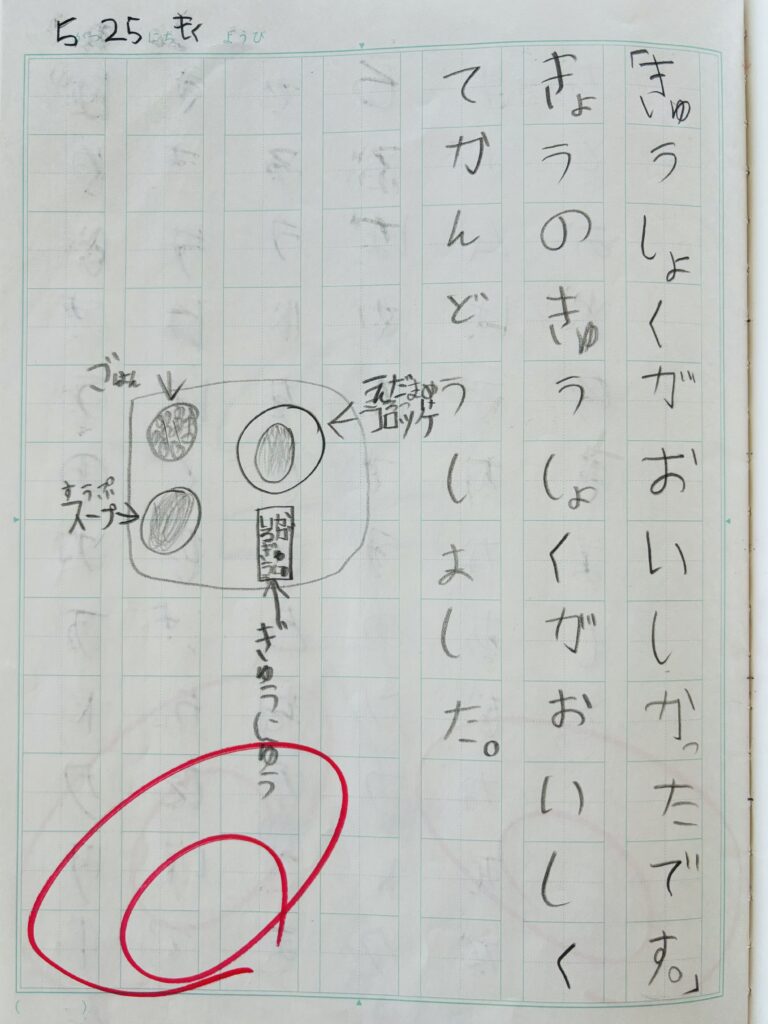 5がつ25にち もくようび
「きゅうしょくがおいしかったです。」
きょうのきゅうしょくがおいしく
てかんどうしました。
えだまめ
コロッケ
ごはん
スープ
ぎゅうにゅう